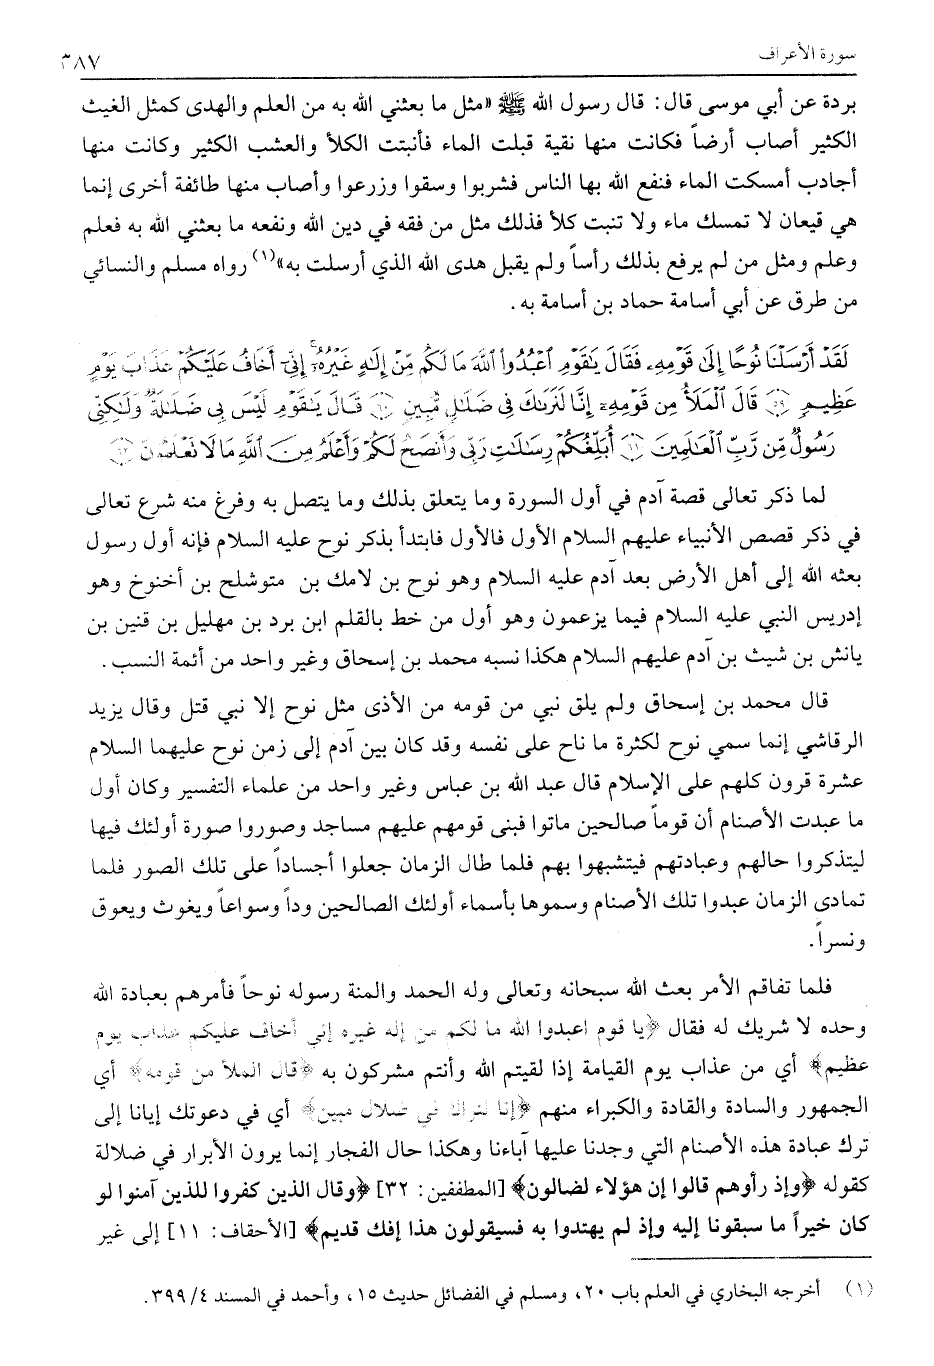 سورة الأعراف
٣٨٧
بردة عن أبي موسى قال: قال رسول الله ﷺ «مثل ما بعثني الله به من العلم والهدى كمثل الغيث
الكثير أصاب أرضاً فكانت منها نقية قبلت الماء فأنبتت الكلأ والعشب الكثير وكانت منها
أجادب أمسكت الماء فنفع الله بها الناس فشربوا وسقوا وزرعوا وأصاب منها طائفة أخرى إنما
هي قيعان لا تمسك ماء ولا تنبت كلأ فذلك مثل من فقه في دين الله ونفعه ما بعثني الله به فعلم
وعلم ومثل من لم يرفع بذلك رأساً ولم يقبل هدى الله الذي أرسلت به»(١) رواه مسلم والنسائي
من طرق عن أبي أسامة حماد بن أسامة به.
لَقَدْ أَرْسَلْنَا نُوحًا إِلَىٰ قَوْمِهِۦ فَقَالَ يَٰقَوْمِ ٱعْبُدُوا۟ ٱللَّهَ مَا لَكُم مِّنْ إِلَٰهٍ غَيْرُهُۥٓ إِنِّىٓ أَخَافُ عَلَيْكُمْ عَذَابَ يَوْمٍ
عَظِيمٍ ٥٩ قَالَ ٱلْمَلَأُ مِن قَوْمِهِۦٓ إِنَّا لَنَرَىٰكَ فِى ضَلَٰلٍ مُّبِينٍ ٦٠ قَالَ يَٰقَوْمِ لَيْسَ بِى ضَلَٰلَةٌ وَلَٰكِنِّى
رَسُولٌ مِّن رَّبِّ ٱلْعَٰلَمِينَ ٦١ أُبَلِّغُكُمْ رِسَٰلَٰتِ رَبِّى وَأَنصَحُ لَكُمْ وَأَعْلَمُ مِنَ ٱللَّهِ مَا لَا تَعْلَمُونَ ٦٢
لما ذكر تعالى قصة آدم في أول السورة وما يتعلق بذلك وما يتصل به وفرغ منه شرع تعالى
في ذكر قصص الأنبياء عليهم السلام الأول فالأول فابتدأ بذكر نوح عليه السلام فإنه أول رسول
بعثه الله إلى أهل الأرض بعد آدم عليه السلام وهو نوح بن لامك بن متوشلح بن أخنوخ وهو
إدريس النبي عليه السلام فيما يزعمون وهو أول من خط بالقلم ابن برد بن مهليل بن قنين بن
يانش بن شيث بن آدم عليهم السلام هكذا نسبه محمد بن إسحاق وغير واحد من أئمة النسب.
قال محمد بن إسحاق ولم يلق نبي من قومه من الأذى مثل نوح إلا نبي قتل وقال يزيد
الرقاشي إنما سمي نوح لكثرة ما ناح على نفسه وقد كان بين آدم إلى زمن نوح عليهما السلام
عشرة قرون كلهم على الإسلام قال عبد الله بن عباس وغير واحد من علماء التفسير وكان أول
ما عبدت الأصنام أن قوماً صالحين ماتوا فبنى قومهم عليهم مساجد وصوروا صورة أولئك فيها
ليتذكروا حالهم وعبادتهم فيتشبهوا بهم فلما طال الزمان جعلوا أجساداً على تلك الصور فلما
تمادى الزمان عبدوا تلك الأصنام وسموها بأسماء أولئك الصالحين وداً وسواعاً ويغوث ويعوق
ونسراً.
فلما تفاقم الأمر بعث الله سبحانه وتعالى وله الحمد والمنة رسوله نوحاً فأمرهم بعبادة الله
وحده لا شريك له فقال ﴿يا قوم اعبدوا الله ما لكم من إله غيره إني أخاف عليكم عذاب يوم
عظيم﴾ أي من عذاب يوم القيامة إذا لقيتم الله وأنتم مشركون به ﴿قال الملأ من قومه﴾ أي
الجمهور والسادة والقادة والكبراء منهم ﴿إنا لنراك في ضلال مبين﴾ أي في دعوتك إيانا إلى
ترك عبادة هذه الأصنام التي وجدنا عليها آباءنا وهكذا حال الفجار إنما يرون الأبرار في ضلالة
كقوله ﴿وإذ رأوهم قالوا إن هؤلاء لضالون﴾ [المطففين: ٣٢] ﴿وقال الذين كفروا للذين آمنوا لو
كان خيراً ما سبقونا إليه وإذ لم يهتدوا به فسيقولون هذا إفك قديم﴾ [الأحقاف: ١١] إلى غير
(١) أخرجه البخاري في العلم باب ٢٠، ومسلم في الفضائل حديث ١٥، وأحمد في المسند ٤/ ٣٩٩.